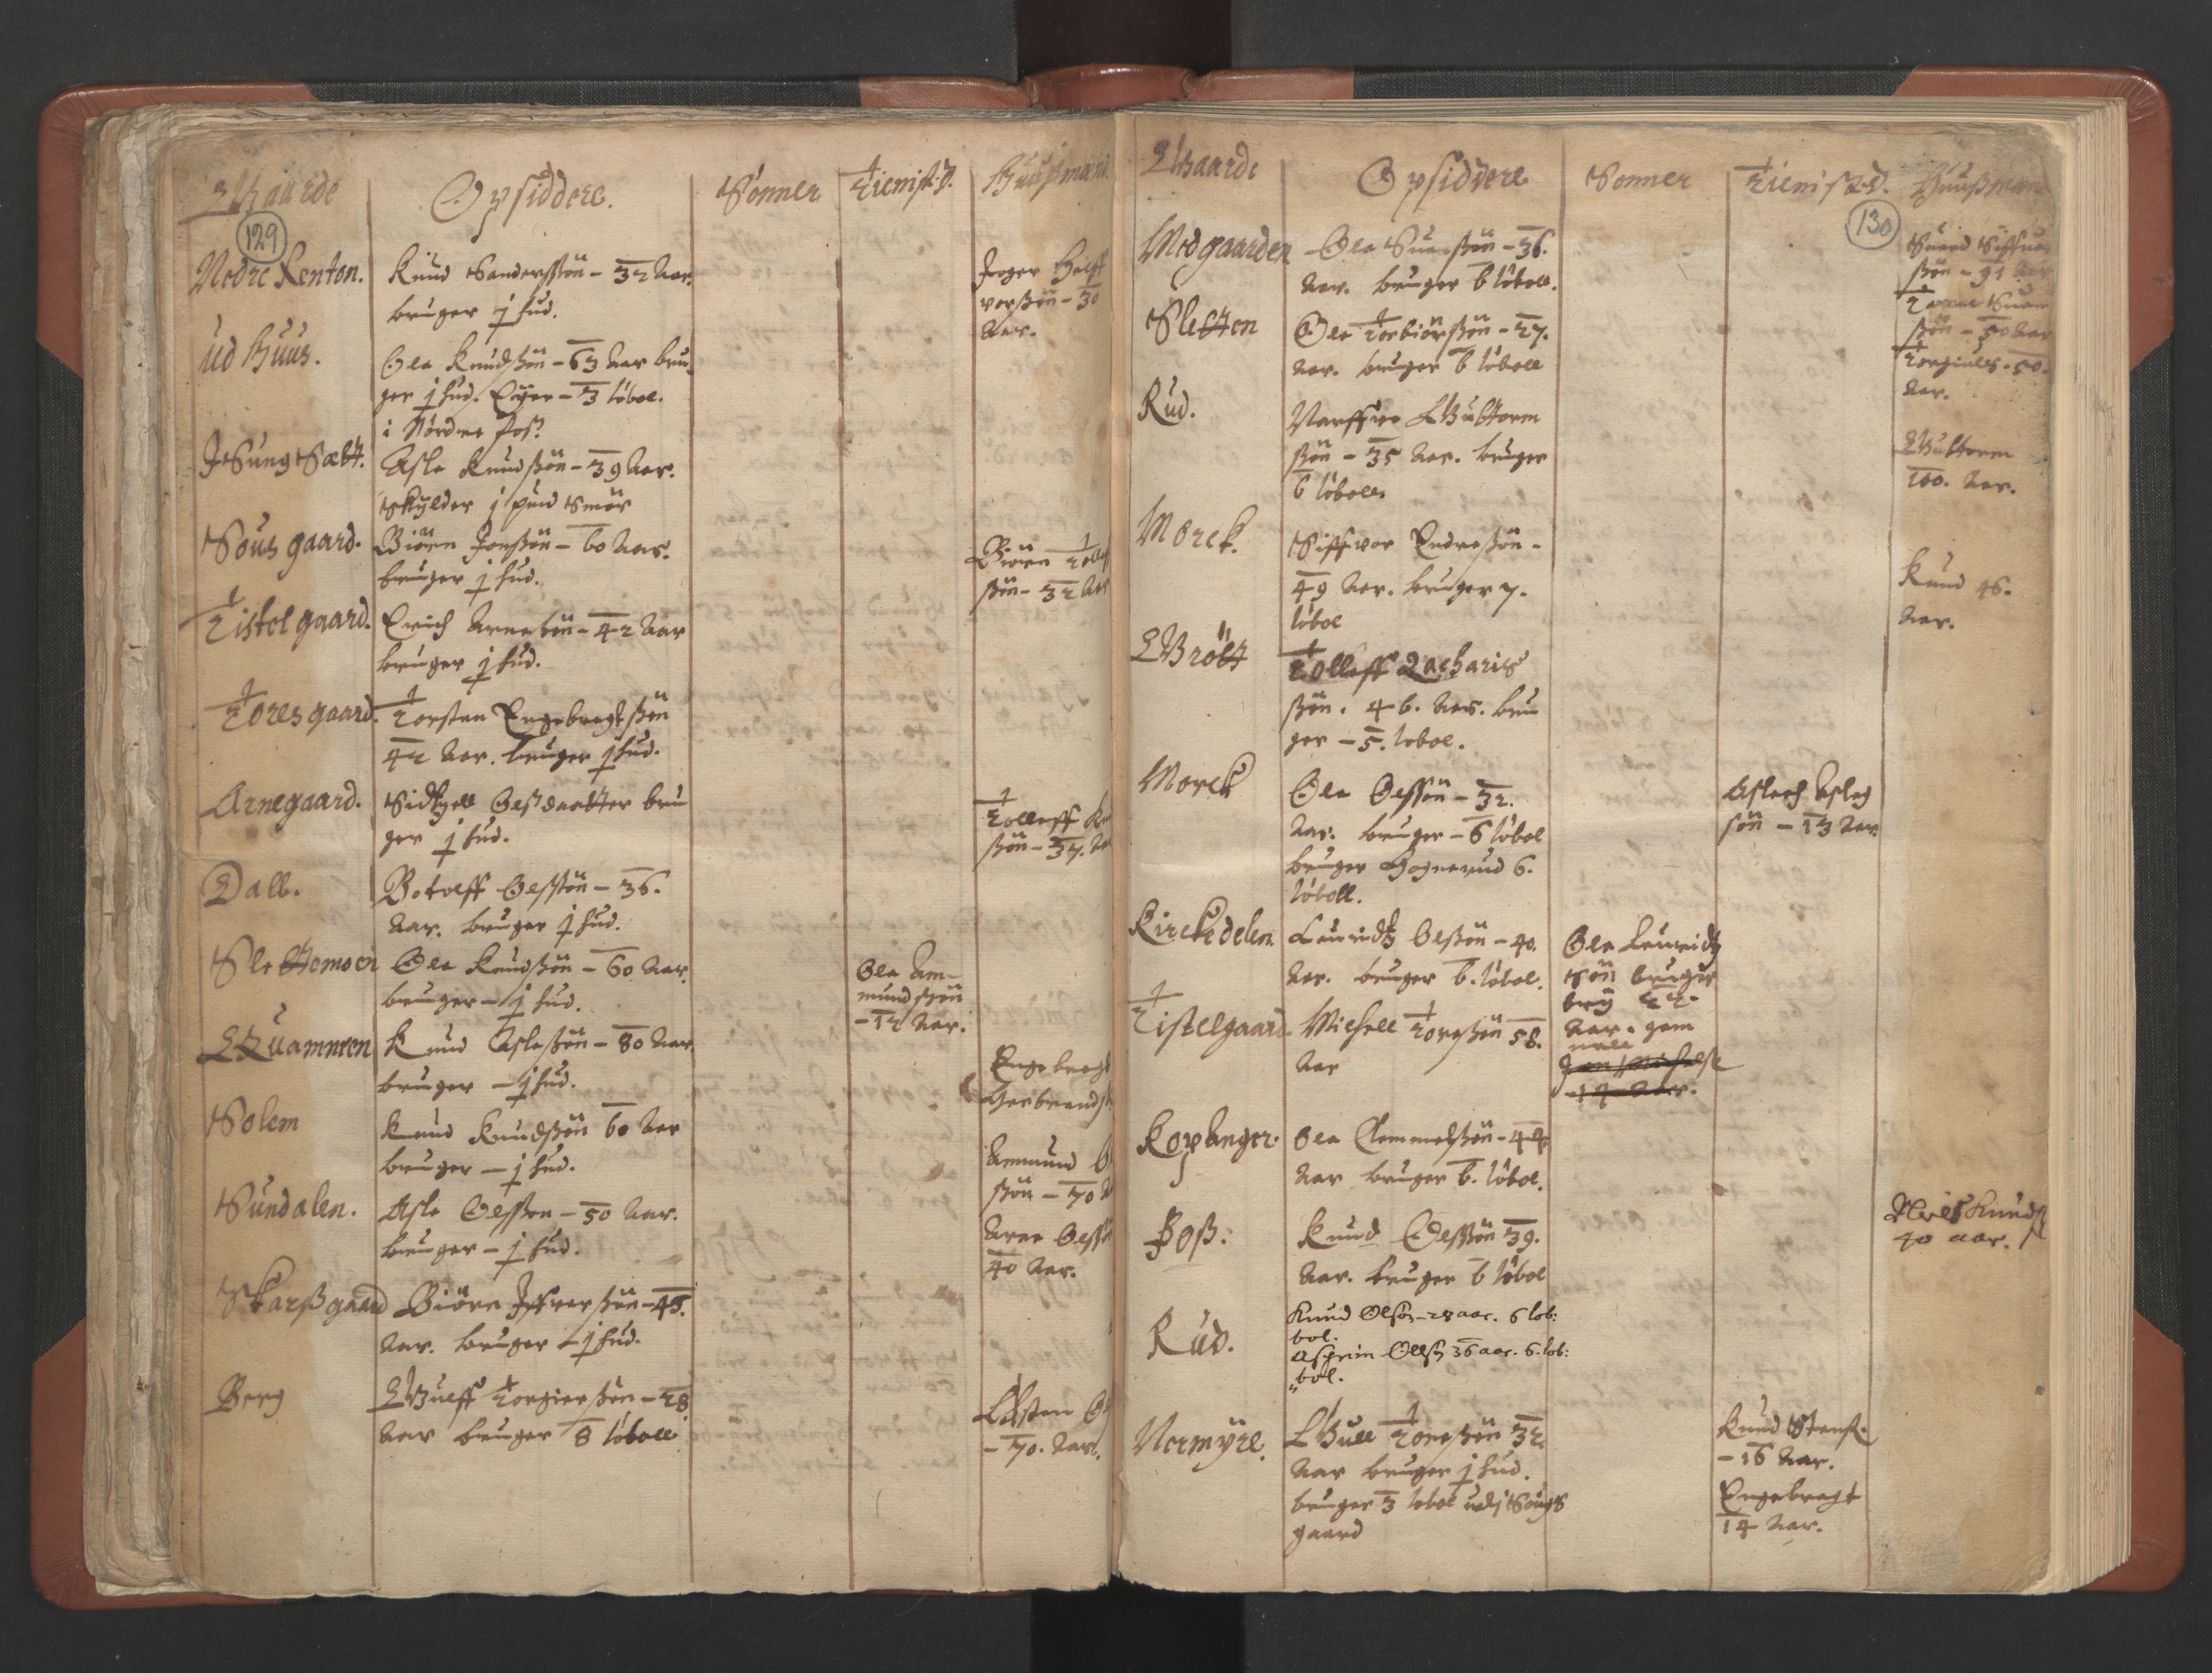 Gaarde
Opsiddere.
Sønner
Tienist:d.
Huusmænd
129
Nedre Kenton.
Knud Sanderssøn - 32 Aar.
bruger j hud.
Joger Helff
vorssøn - 30
Aar.
Ud Huus.
Ole Knudssøn - 63 Aar bru
ger j hud. Eyer - 3 løbol.
i Nordre
JSungSætt.
Asle Knudssøn - 39 Aar.
Skylder j pund Smør
Søusgaard.
Biørn Jonssøn - 60 Aar.
bruger j hud.
Biørn Tolle
ssøn - 32 Aar
Tistelgaard.
Erich Arnesøn - 42 Aar
bruger j hud.
Toresgaard.
Torsten Engebregtssøn
42 Aar. bruger j hud.
Arnegaard.
Sidtzell Olssdaatter bru
ger j hud.
Tolleff
ssøn - 37. Aar
Dall.
Botolff Olssøn - 36.
Aar. bruger j hud.
Slettemoen
Ole Knudssøn - 60 Aar
bruger - j hud.
Ole Am-
mundssøn
- 12 Aar.
Quamnen
Knud Aslessøn - 80 Aar
bruger - j hud.
Engebregt
Herbrands
Solem
Knud Knudssøn 60 Aar
bruger - j hud.
Ammund
ssøn - 70
Sundalen.
Asle Olssøn - 50 Aar.
bruger - j hud.
Arne Olssøn
40 Aar.
Skarssgaard
Biørn Iffverssøn - 45.
Aar. bruger - j hud.
Berg
Gulff Torgierssøn - 28
Aar bruger 8 løboll
- 70. Aar.
Gaarde
Opsiddere
Sønner
Tienist:d.
Huussmænd
130
Medgaarden
Ole Suenssøn - 36.
Aar. bruger 6 løboll.
Siffuer
ssøn - 91 Aar
Suen
ssøn - 50 Aar
Torgiuls - 50.
Aar.
Sletten
Ole Torbiørssøn - 27.
Aar. bruger 6 løboll
Rud.
Narffue Guttorm
ssøn - 35 Aar. bruger
6 løboll.
Guttorm
100. Aar.
Morck.
Siffvor Endressøn -
49 Aar. bruger 7.
løbol
Knud 46.
Aar.
Grøtt
Tolleff Zacharis
ssøn. 46. Aar. bru
ger - 5. løbol.
Morck
Ole Olssøn - 32.
Aar. bruger - 6 løbol
bruger Hognerud 6.
løboll.
Aslach Aslag
søn - 13 Aar
Kirckedelen.
Lauridtz Olssøn - 40.
Aar. bruger 6. løbol.
Ole Lauridtz
Søn bruger
22.
Aar. gam
mell
Tistelgaard
Michell Torssøn 58.
Aar
Jon Michelss
Aar.
Kopanger.
Ole Clemmetssøn - 44
Aar bruger 6. løbol.
Foss:
Knud Olssøn 39.
Aar. bruger 6 løbol
Niels Knuds
40 aar.
Rud.
Knud Olsøn - 28 aar. 6 løb:
bol.
Asgrim Olssøn 36 aar. 6. løb:
bol.
Nermyre.
Gull Toressøn 32
Aar bruger j hud.
bruger 3 løbol udj Søugs
gaard
Knud Stenss.
- 16 Aar.
Engebregt
14 Aar.